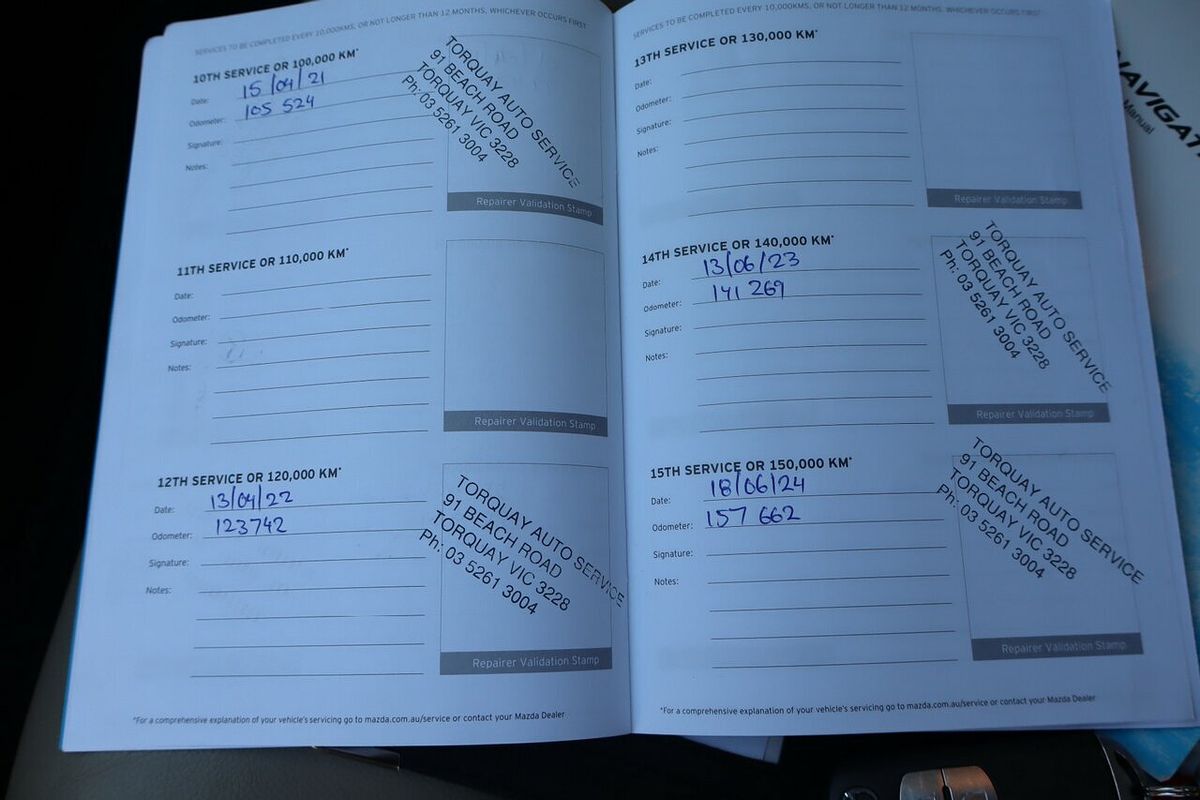 SERVICES TO BE COMPLETED EVERY 10,000KMS, OR NOT LONGER THAN 12 MONTHS, WHICHEVER OCCURS FIRST
10TH SERVICE OR 100,000 KM*
Date: 15/04/21
Odometer: 105 524
Signature:
Notes:
TORQUAY AUTO SERVICE
91 BEACH ROAD
TORQUAY VIC 3228
Ph: 03 5261 3004
Repairer Validation Stamp
11TH SERVICE OR 110,000 KM*
Date:
Odometer:
Signature:
Notes:
Repairer Validation Stamp
12TH SERVICE OR 120,000 KM*
Date: 13/04/22
Odometer: 123742
Signature:
Notes:
TORQUAY AUTO SERVICE
91 BEACH ROAD
TORQUAY VIC 3228
Ph: 03 5261 3004
Repairer Validation Stamp
*For a comprehensive explanation of your vehicle's servicing go to mazda.com.au/service or contact your Mazda Dealer
SERVICES TO BE COMPLETED EVERY 10,000KMS, OR NOT LONGER THAN 12 MONTHS, WHICHEVER OCCURS FIRST
13TH SERVICE OR 130,000 KM*
Date:
Odometer:
Signature:
Notes:
Repairer Validation Stamp
14TH SERVICE OR 140,000 KM*
Date: 13/06/23
Odometer: 141 269
Signature:
Notes:
TORQUAY AUTO SERVICE
91 BEACH ROAD
TORQUAY VIC 3228
Ph: 03 5261 3004
Repairer Validation Stamp
15TH SERVICE OR 150,000 KM*
Date: 18/06/24
Odometer: 157 662
Signature:
Notes:
TORQUAY AUTO SERVICE
91 BEACH ROAD
TORQUAY VIC 3228
Ph: 03 5261 3004
Repairer Validation Stamp
*For a comprehensive explanation of your vehicle's servicing go to mazda.com.au/service or contact your Mazda Dealer
NAVIGAT
Manual